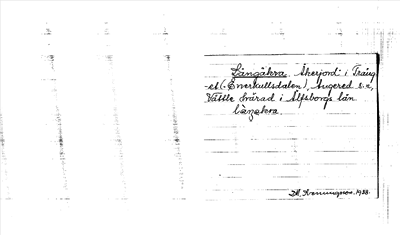 Långåkra. Åkerjord i Träng-
et (: Enerkullsdalen), Angered s:n,
Vättle härad i Älfsborgs län
långåkra.
1928.